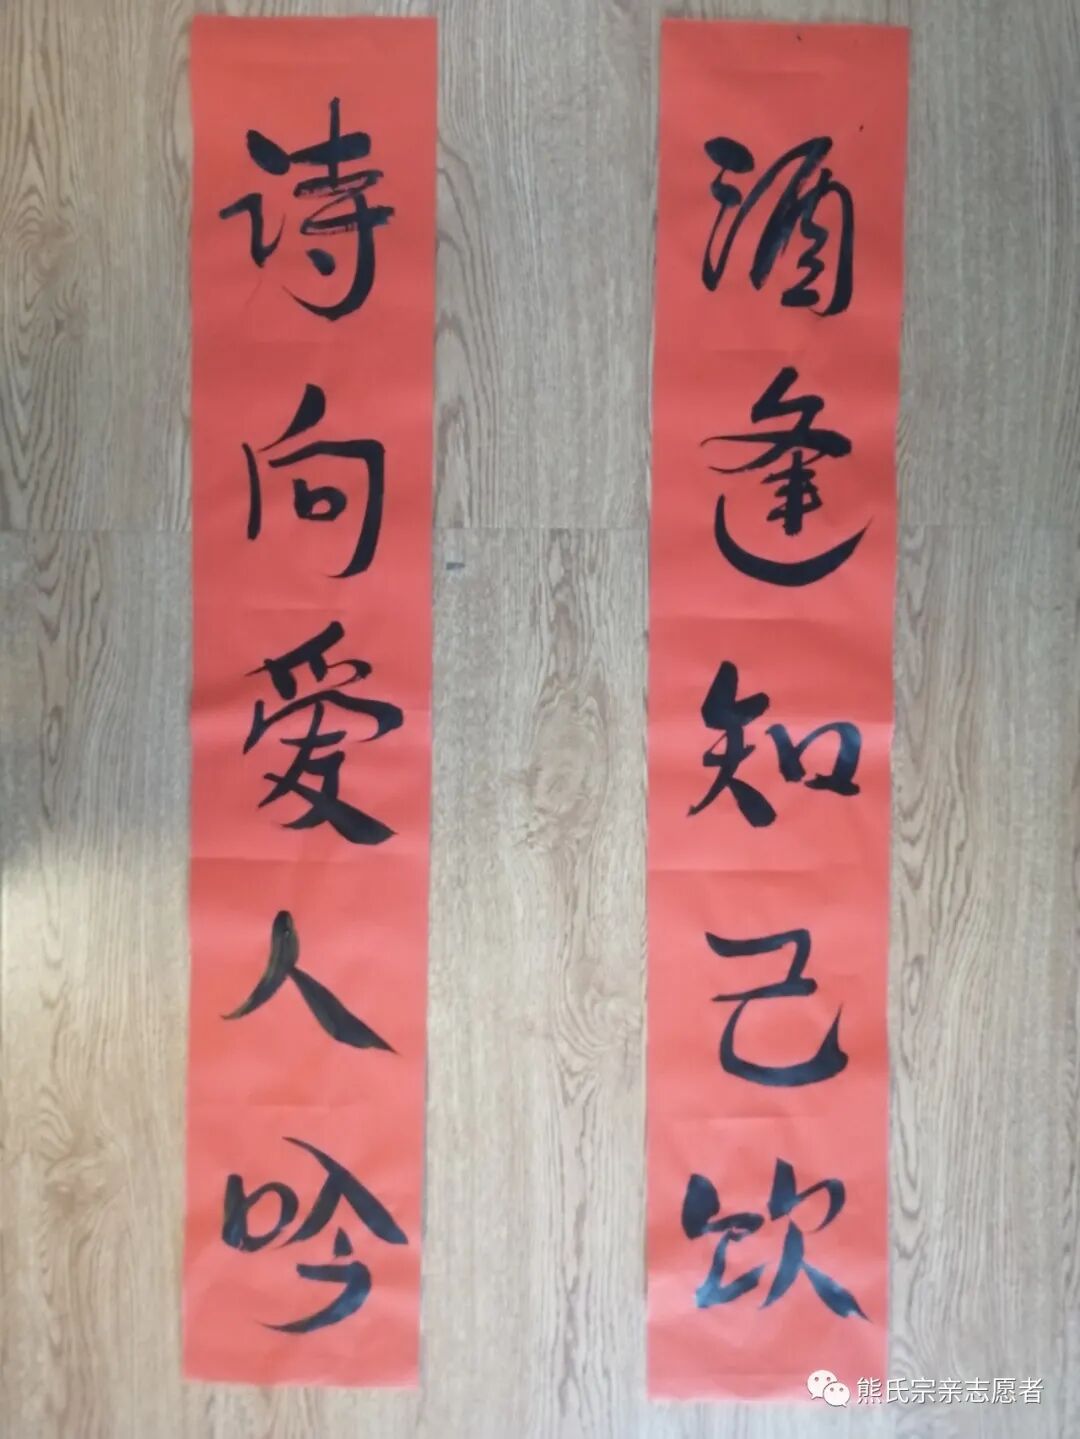 酒逢知己饮
诗向爱人吟
熊氏宗亲志愿者